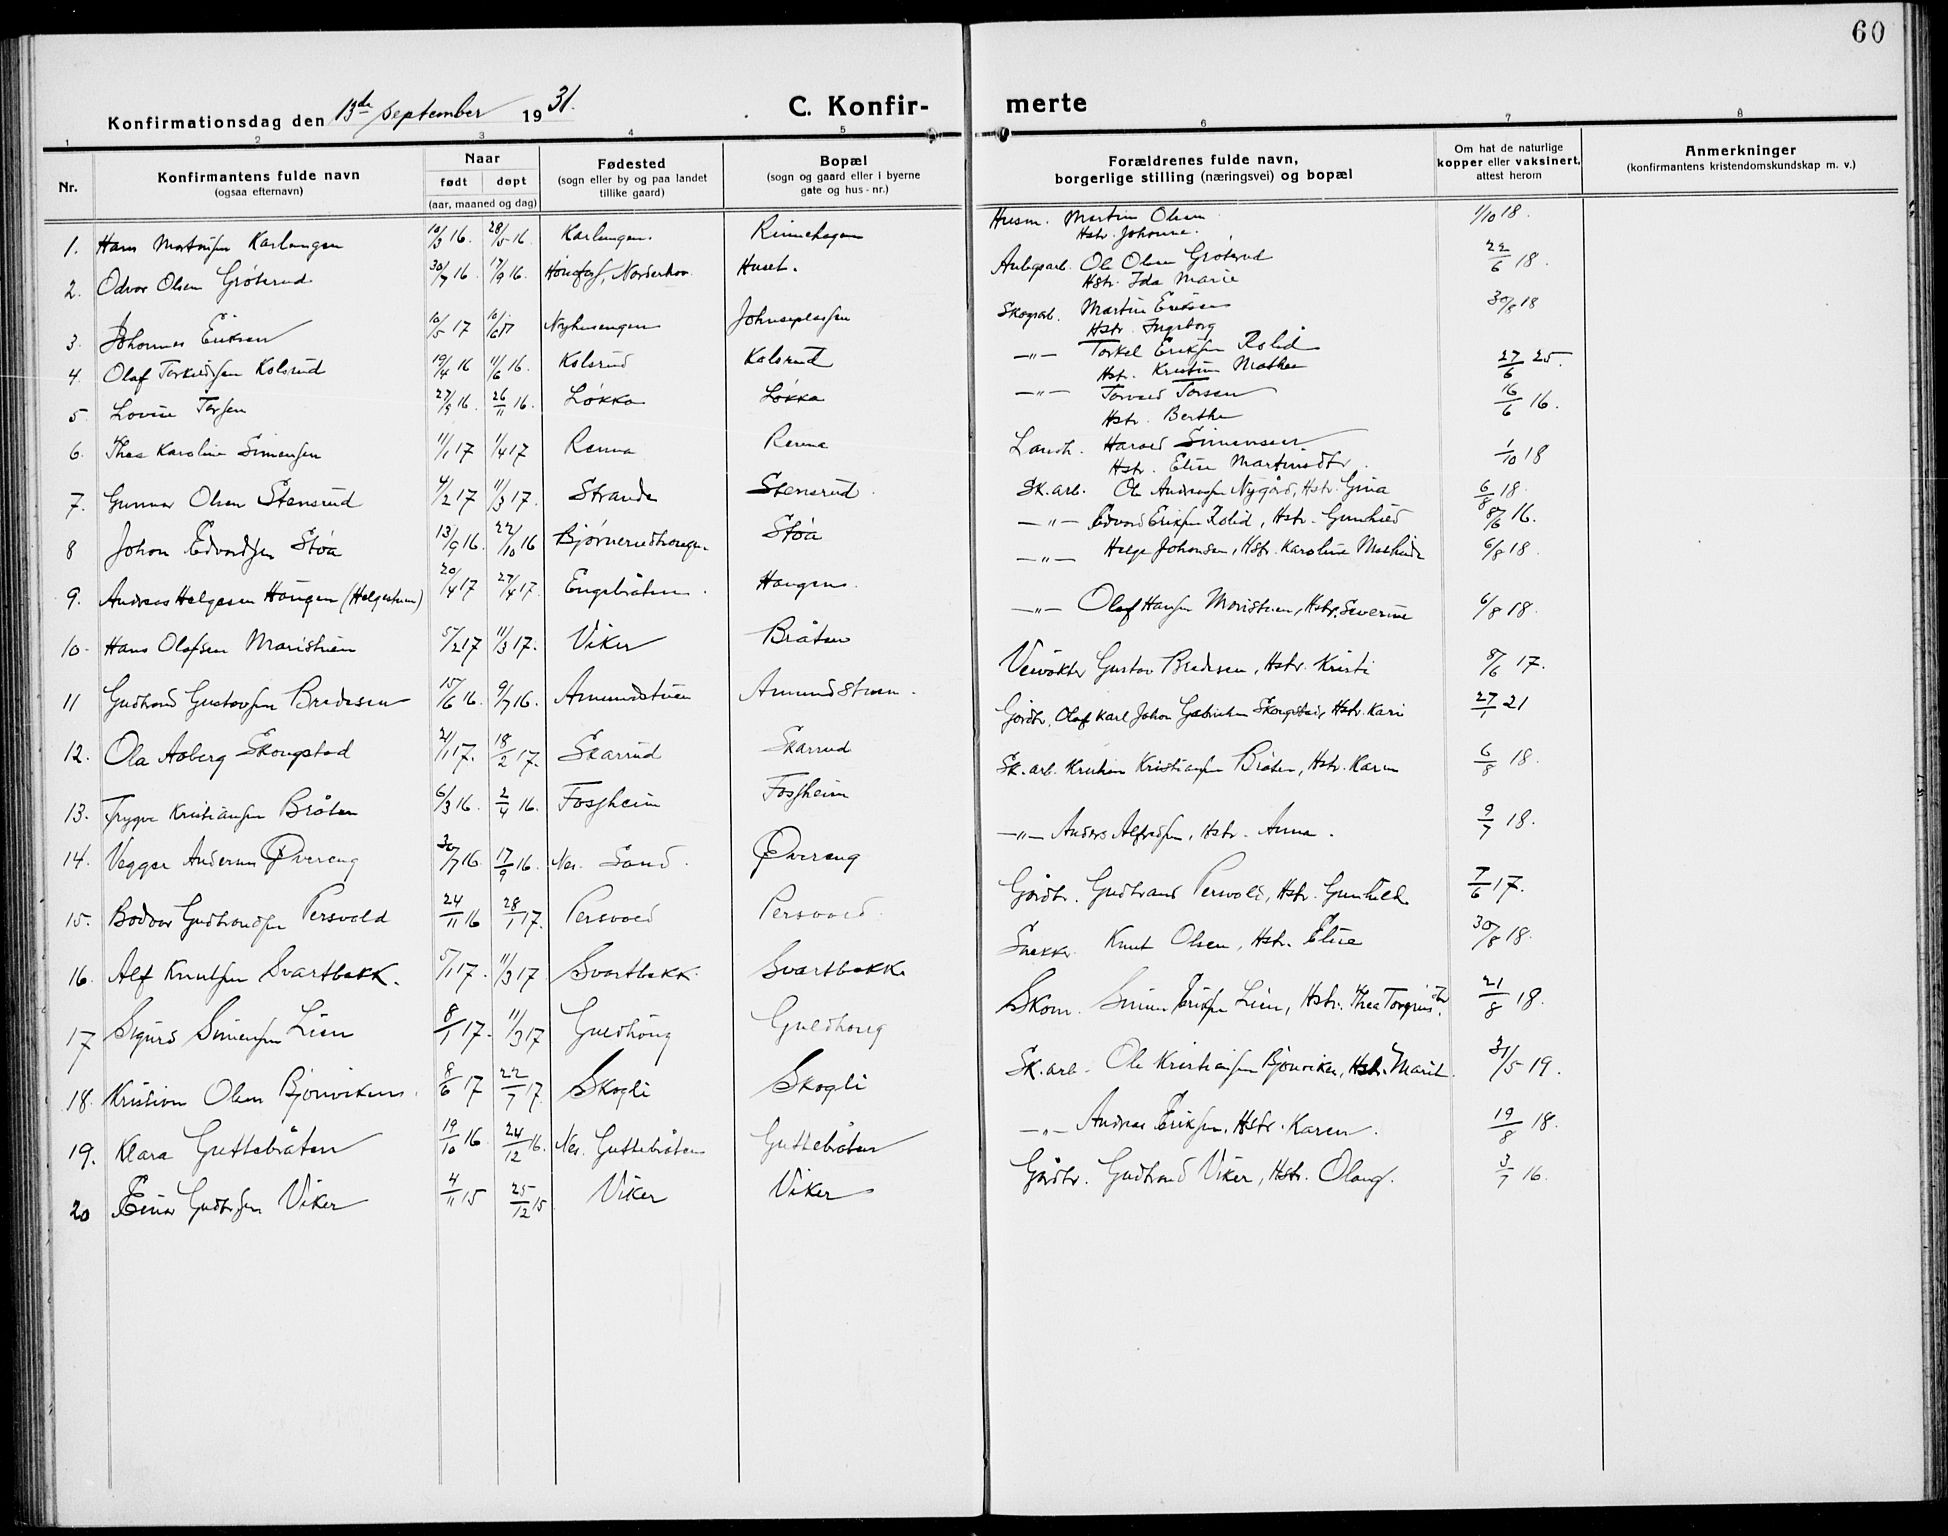 60
Konfirmationsdag den 13de september 1931.
C. Konfir- merte
1 2 3 4 5 6 7 8
Nr.
Konfirmantens fulde navn
(ogsaa efternavn)
Naar
født døpt
(aar, maaned og dag)
Fødested
(sogn eller by og paa landet
tillike gaard)
Bopæl
(sogn og gaard eller i byerne
gate og hus - nr.)
Forældrenes fulde navn,
borgerlige stilling (næringsvei) og bopæl
Om hat de naturlige
kopper eller vaksinert,
attest herom
Anmerkninger
(konfirmantens kristendomskundskap m. v.)
1. Hans Karlengen 10/3 16. 28/5 16. Karlengen. Husm. Martin Olsen 1/10 18.
Hstr. Johanne.
2. Odvar Olsen Grøterud 30/7 16. 17/9 16. Hønefoss, Norderhov Huset. Ole Olsen Grøterud 22/6 18.
Hstr. Ida Marie
3. Johannes Eriksen 10/5 17 Nyhusengen Skogarb. Martin Eriksen 30/8 18
Hstr. Ingeborg
4. Olaf Kolsrud 19/4 16 11/6 16. Kolsrud Kolsrud —"— Torkel Eriksen Rolid 27/6 25.
Hstr. Kristine Mathea
5. Lovise 27/9 16. 26/11 16. Løkka Løkka —"— Torvald Torsen 16/6 16.
Hstr. Berthe
6. Thea Karoline Simensen 11/1 17 1/4 17 Renna Renna Harald Simensen 1/10 18
Hstr. Elise Martinsdtr.
7. Gunnar Olsen Stensrud 4/2 17 11/3 17. Strande Stensrud. Sk. arb. Ole Andreassen Nygård, Hstr. Gina 6/8 18.
8 Johan Edvardsen Støa 13/9 16. 22/10 16 Støa —"— Edvard Eriksen Rolid, Hstr. Gunhild 8/6 16.
9. Andreas Helgesen Haugen (Helgestuen) 20/4 17 27/4 17. Engebråten. Haugen. —"— Helge Johansen, Hstr. Karoline Mathilde 6/8 18.
10. Hans Olafsen Maristuen 5/2 17 11/3 17. Viker Bråten —"— Olaf Hansen Moristuen, Hstr. Severine 6/8 18.
11 Gudbrand Gustavsen Bredesen 15/6 16. 9/7 16. Amundstuen Amundstuen. Veivokter Gustav Bredesen, Hstr. Kristi 8/6 17.
12. Ola Aaberg Skougstad 21/1 17. 18/2 17. Skarrud Skarrud Gårdbr. Olaf Karl Johan Skougstad, Hstr. Kari 27/1 21
13. Trygve Kristiansen Bråten 6/3 16. 2/4 16. Fossheim Fossheim Sk. arb. Kristian Kristiansen Bråten, Hstr. Karen 6/8 18.
14. Vegger Andersen Øvereng 30/7 16. 17/9 16. Nes. Sand. Øvereng —"— Anders Alfredsen, Hstr. Anna. 9/7 18.
15. Bodvar Gudbrandsen Persvold 24/11 16 28/1 17. Persvold Persvold. Gårdbr. Gudbrand Persvold, Hstr. Gunhild. 7/6 17.
16. Alf Knutsen Svartbekk. 5/1 17. 11/3 17 Svartbekk. Svartbekk Snekker Knut Olsen, Hstr. Elise 30/8 18.
17 Sigurd Simensen Lien 8/1 17. 11/3 17 Guldhaug Guldhaug Skom. Simen Eriksen Lien, Hstr. Thea Torgrimsdtr. 21/8 18.
18. Kristian Olsen Bjonviken. 8/6 17 22/7 17. Skogli Skogli Sk. arb. Ole Kristiansen Bjonviken, Hstr. Marit. 31/5 19.
19. Klara Guttebråten 19/10 16 24/12 16. Nes. Guttebråten Guttebråten —"— Andreas Eriksen, Hstr. Karen. 19/8 18.
20 Einar Gudbrsen Viker 4/11 15 25/12 15 Viker Viker Gårdbr. Gudbrand Viker, Hstr. Olaug. 3/7 16.